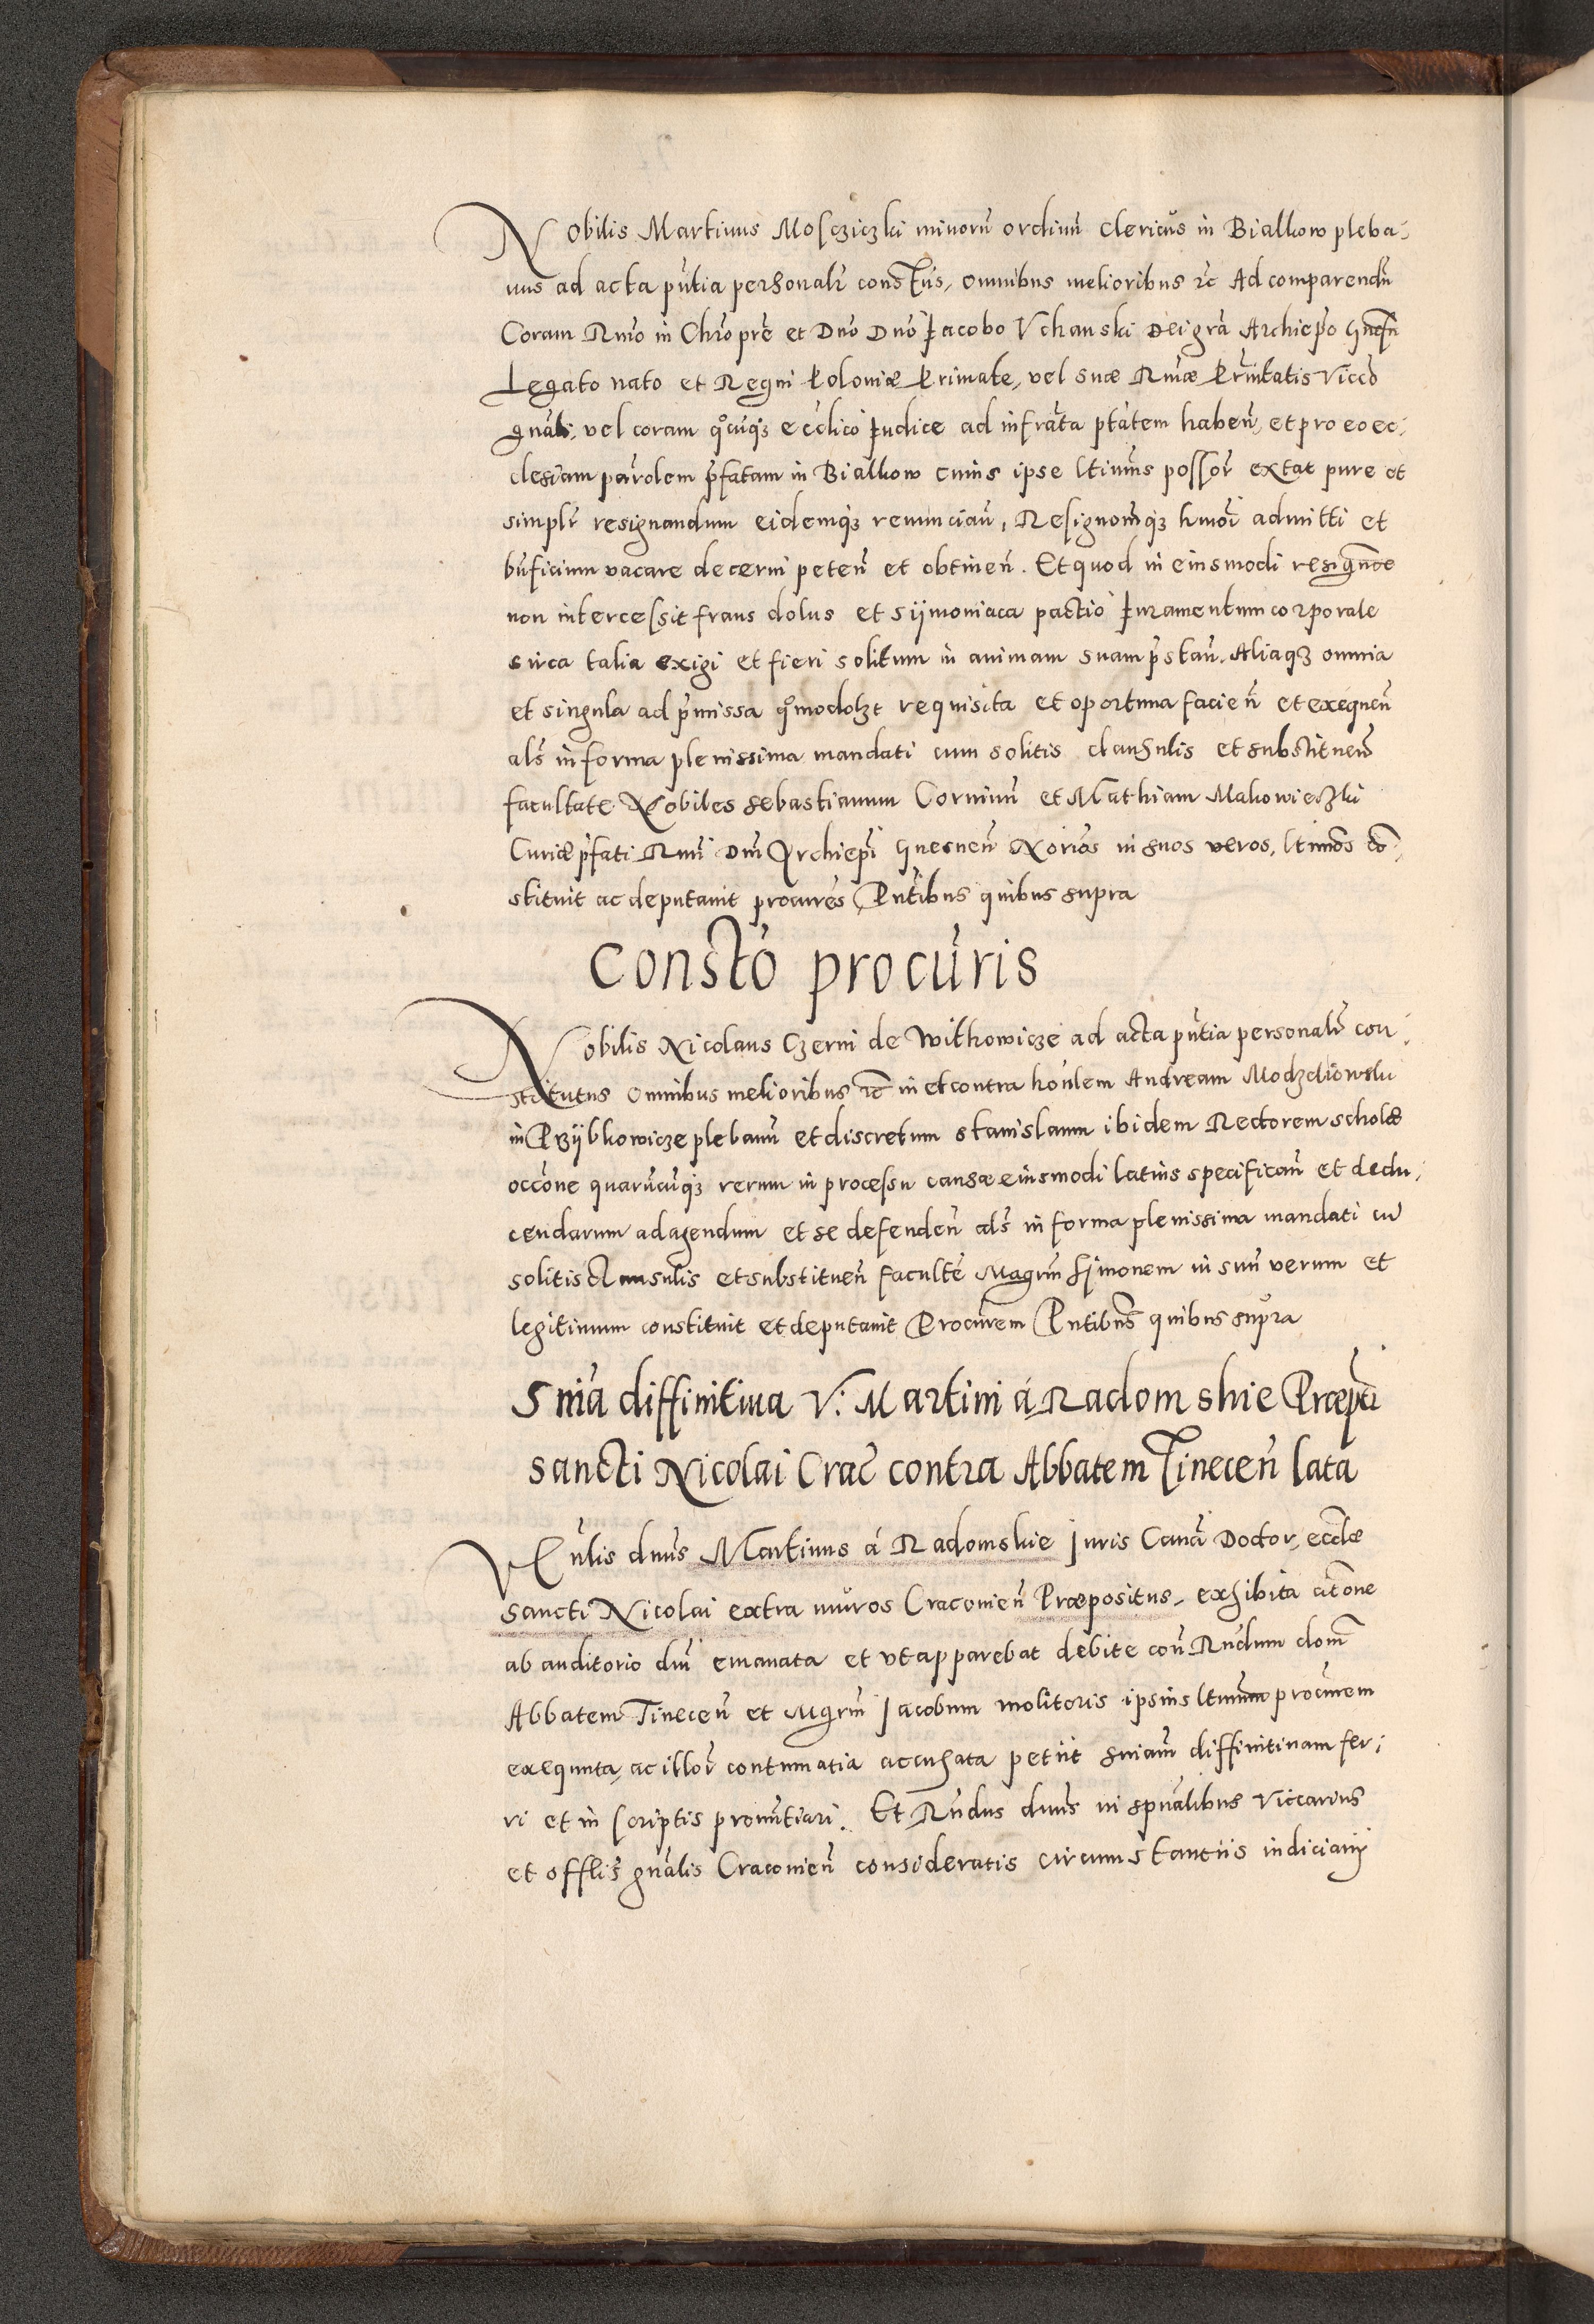 Nobilis Martinus Moscziczki minorũ ordinũ clericus in Bialkow pleba-
nus ad acta pñtia personalr̃ consTus, omnibus melioribus ꝛc Ad comparendũ
Coram Rm̃o in Chro pr̃e et Dño Dño Jacobo Vchanski Dei gr̃a Archiep̃o Gnesñ
Legato nato et Regni Poloniæ Primate, vel suæ Rm̃æ Pr̃nitatis Viccõ
gnãli, vel coram qͦcuq̃ʒ ecclico Judice ad infrãta ptãtem habeñ, et pro eo ec-
clesiam parõlem p̃fatam in Bialkow cuius ipse ltimus possor̃ extat pure et
simplr̃ resignandum eidemq̃ʒ renunciañ, Resignom̃q̃ʒ hmõi admitti et
bñficium vacare decerni peteñ et obtineñ. Et quod in eiusmodi resignõe
non intercessit fraus dolus et sÿmoniaca pactio Juramentum corporale
circa talia exigi et fieri solitum in animam suam p̃stañ. Aliaqʒ omnia
et singula ad p̃missa qͦmodolʒt requisita et oportuna facieñ et exequeñ
als̃ in forma plenissima mandati cum solitis clausulis et substitueñ
facultate Nobiles Sebastianum Corninũ et Mathiam Makowieczki
Curiæ p̃fati Rm̃i Dñi Archiep̃i Gnesneñ Norios in suos veros, ltimos cõ-
stituit ac deputauit procures̃ Pñtibus quibus supra
Constõ procũris
Nobilis Nicolaus Czerni de Witkowicze ad acta pñtia personalr̃ con-
stitutus omnibus melioribus ꝛc in et contra honlem Andream Modzeliowski
in Przÿbkowicze plebanũ et discretum Stanislaum ibidem Rectorem scholæ
occõne quarũcuq̃ʒ rerum in processu causæ eiusmodi latius specificañ et dedu-
cendarum ad agendum et se defendeñ als̃ in forma plenissima mandati cũ
solitis clausulis et substitueñ facultẽ Magrm̃ Simonem in suũ verum et
legitimum constituit et deputauit Procũrem Pñtibus quibus supra
Sniã diffinitiua V: Martini á Radomskie Præpti
sancti Nicolai Crac̃ contra Abbatem Tineceñ lata
VEnlis dnũs Martinus á Radomskie Juris Canõ Doctor, ecclæ
Sancti Nicolai extra muros Cracouieñ Præpositus, exhibita citõne
ab auditorio dñi emanata et vt apparebat debite coñ Rñdum dom̃
Abbatem Tineceñ et Mgrm̃ Jacobum molitoris ipsius ltimum procũrem
exequuta, ac illor̃ contumatia accusata petiit sniam̃ diffinitiuam fer-
ri et in scriptis pronuntiari. Et Rñdus dnũs in spũalibus Viccarius
et offlis̃ gnãlis Cracouieñ consideratis circumstantiis indiciarÿ